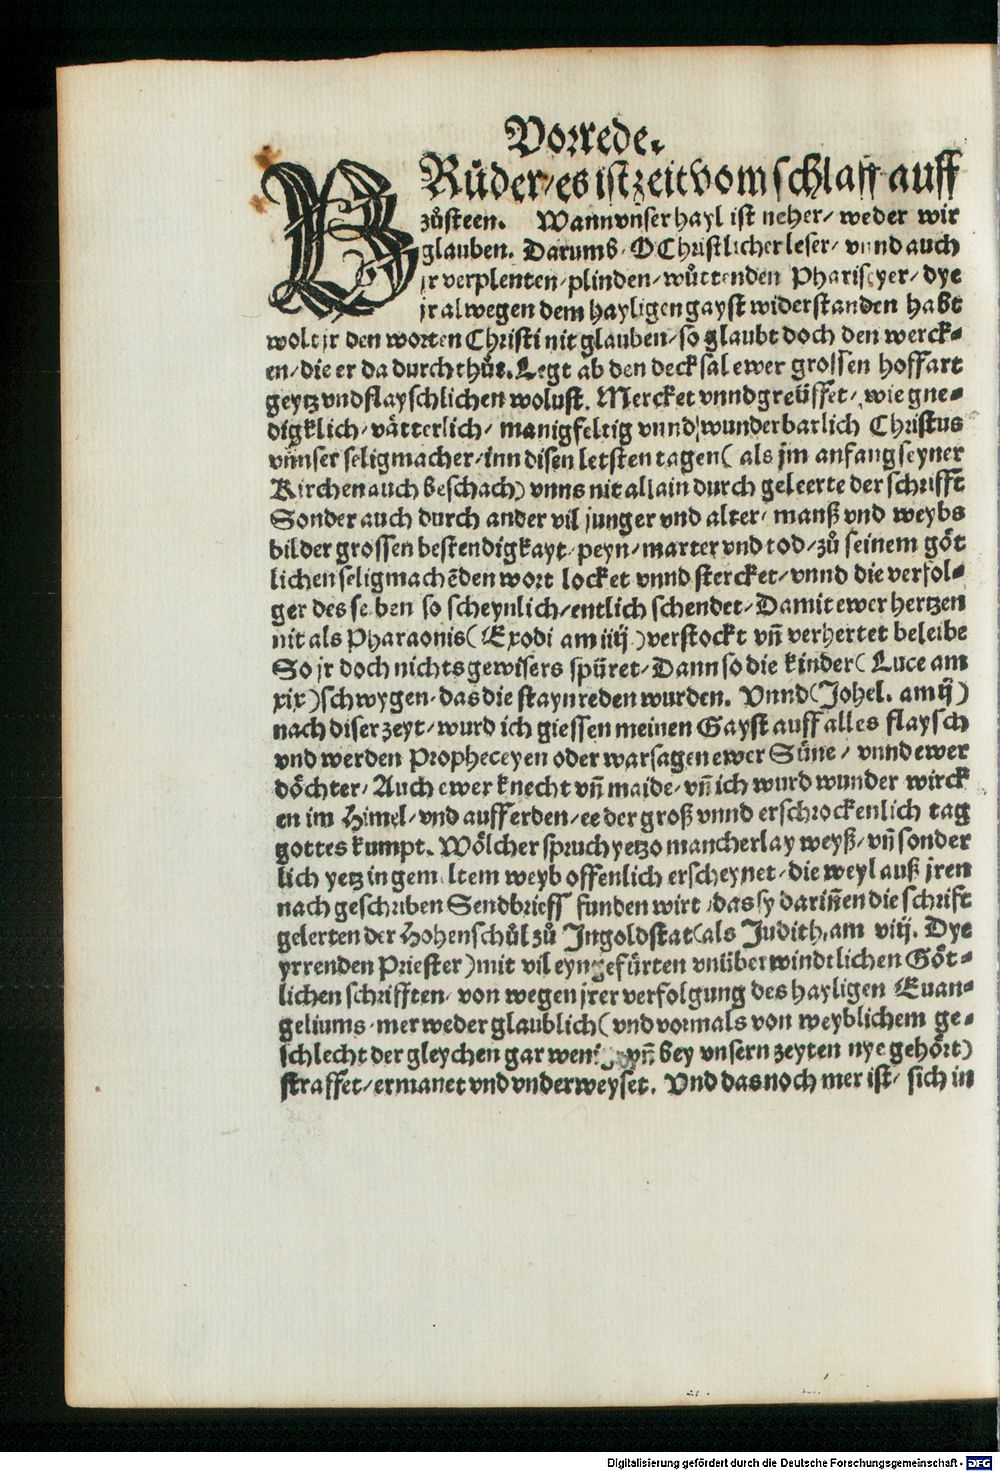 Vorrede.
BRüder/ es ist zeit vom schlaff auff
zůsteen. Wann vnser hayl ist neher/ weder wir
glauben. Darumb/ O Christlicher leser/ vnnd auch
jr verplenten/ plinden/ wůttenden Phariseyer/ dye
jr alwegen dem hayligen gayst widerstanden habt
wolt jr den worten Christi nit glauben/ so glaubt doch den werck⸗
en/ die er da durch thůt. Legt ab den decksal ewer grossen hoffart
geytz vnd flayschlichen wolust. Mercket vnnd greüffet/ wie gne⸗
digklich/ vätterlich/ manigfeltig vnnd wunderbarlich Christus
vnnser seligmacher/ inn disen letsten tagen( als jm anfang seyner
Kirchen auch beschach) vnns nit allain durch geleerte der schrifft
Sonder auch durch ander vil junger vnd alter/ manß vnd weybs
bilder grossen bestendigkayt/ peyn/ marter vnd tod/ zů seinem göt
lichen seligmachēden wort locket vnnd stercket/ vnnd die verfol⸗
ger des selben so scheynlich/ entlich schendet/ Damit ewer hertzen
nit als Pharaonis( Exodi am iiij.) verstockt vñ verhertet beleibe
So jr doch nichts gewisers spüret/ Dann so die kinder( Luce am
xix) schwygen/ das die stayn reden wurden. Vnnd (Johel. am ij)
nach diser zeyt/ wurd ich giessen meinen Gayst auff alles flaysch
vnd werden Propheceyen oder warsagen ewer Süne/ vnnd ewer
döchter/ Auch ewer knecht vñ maide/ vñ ich wurd wunder wirck
en im Himel/ vnd auff erden/ ee der groß vnnd erschrockenlich tag
gottes kumpt. Wölcher spruch yetzo mancherlay weyß/ vñ sonder
lich yetz in gemeltem weyb offenlich erscheynet/ die weyl auß jren
nach geschriben Sendbrieff funden wirt/ das sy dariñen die schrift
gelerten der Hohenschůl zů Ingoldstat( als Judith. am viij. Dye
yrrenden Priester) mit vil eyngefürten vnüberwindtlichen Göt⸗
lichen schrifften/ von wegen jrer verfolgung des hayligen Euan⸗
geliums/ mer weder glaublich( vnd vormals von weyblichem ge⸗
schlecht der gleychen gar wenig/ vñ bey vnsern zeyten nye gehört)
straffet/ ermanet vnd vnderweyset. Vnd das noch mer ist/ sich in
Digitalisierung gefördert durch die Deutsche Forschungsgemeinschaft - DFG